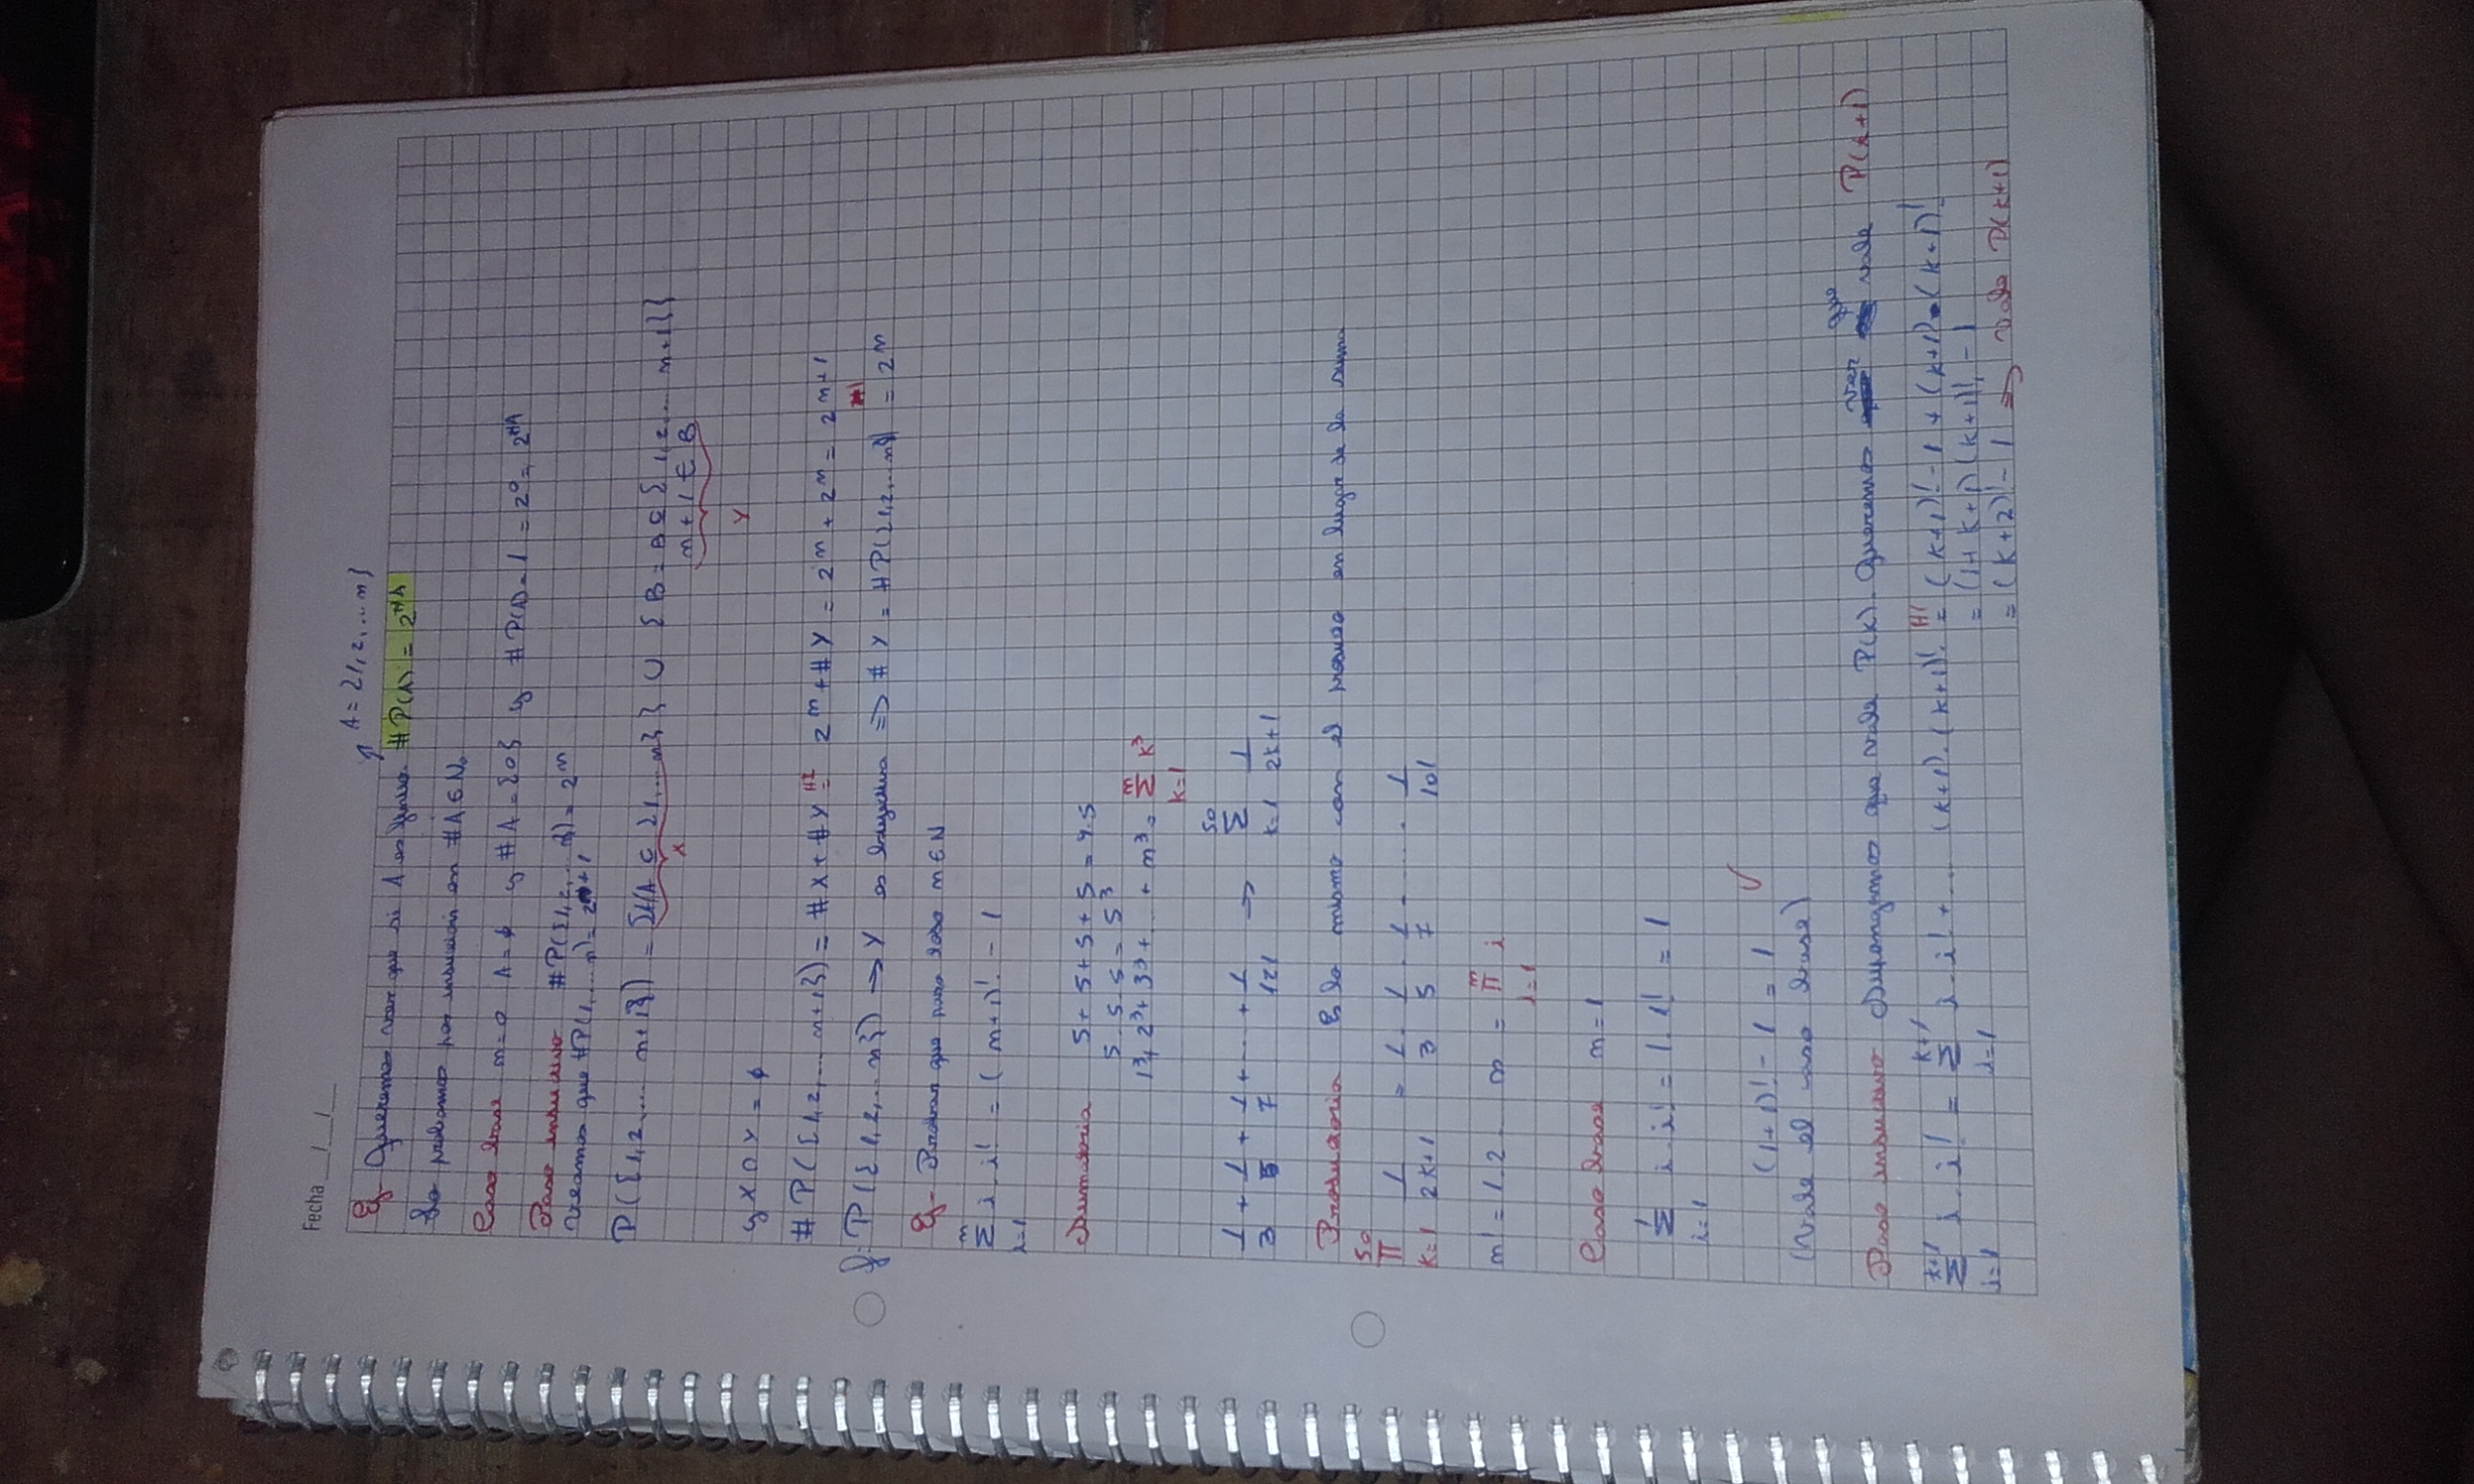 Fecha __/__/__
A = {1, 2, ... n}
Ej- Queremos ver que si A es finito. #P(A) = 2^#A
Lo probamos por inducción en #A ∈ N₀
Caso base n=0 A=∅ y #A = {0} y #P(A) = 1 = 2⁰ = 2^#A
Paso inductivo #P({1, 2, ... n}) = 2ⁿ
Veamos que #P(1, ... n) = 2n+1
P({1, 2, ... n+1}) = {A/A ⊆ {1, ... n}} ∪ {B = B ⊆ {1, 2, ... n+1}}
n+1 ∈ B
X
Y
y X ∩ Y = ∅
# P({1, 2, ... n+1}) = #X + #Y =^HI 2ⁿ + #Y = 2ⁿ + 2ⁿ = 2ⁿ⁺¹
f: P({1, 2, ... n}) → Y es biyectiva ⇒ #Y = #P({1, 2, ... n}) = 2ⁿ
Ej- Probar que para todo n ∈ N
n
Σ i . i! = (n+1)! - 1
i=1
Sumatoria 5 + 5 + 5 + 5 = 4.5
5 . 5 . 5 = 5³
1³ + 2³ + 3³ + ... + n³ = Σ(k=1, n) k³
1/3 + 1/5 + 1/7 + ... + 1/121 → Σ(k=1, 50) 1/(2k+1)
Productoria Es lo mismo con el producto en lugar de la suma
Π(k=1, 50) 1/(2k+1) = 1/3 . 1/5 . 1/7 . ... . 1/101
n! = 1 . 2 . ... n = Π(i=1, n) i
Caso base n = 1
Σ(i=1, 1) i . i! = 1 . 1! = 1
(1+1)! - 1 = 1 ✓
(Vale el caso base)
Paso inductivo Supongamos que vale P(k). Queremos ver que vale P(k+1)
Σ(i=1, k+1) i . i! = Σ(i=1, k+1) i . i! + ... (k+1) . (k+1)! =^HI (k+1)! - 1 + (k+1) . (k+1)!
= (1 + k+1) (k+1)! - 1
= (k+2)! - 1 ⇒ Vale P(k+1)